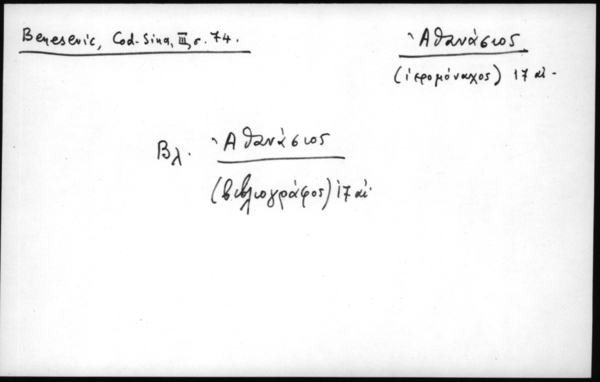 Benesevic, Cod. Sina, III, σ. 74.
Ἀθανάσιος
(ἱερομόναχος) 17 αἰ.
Βλ. Ἀθανάσιος
(βιβλιογράφος) 17 αἰ.